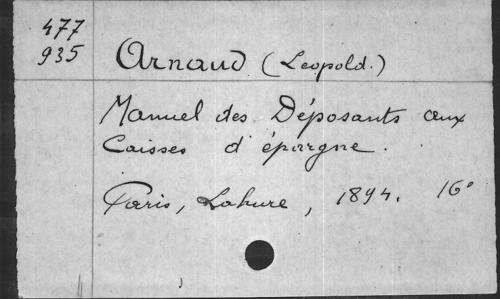 477
935
Arnaud (Leopold.)
Manuel des Déposants aux
Caisses d'épargne.
Paris, Lahure, 1894. 16°